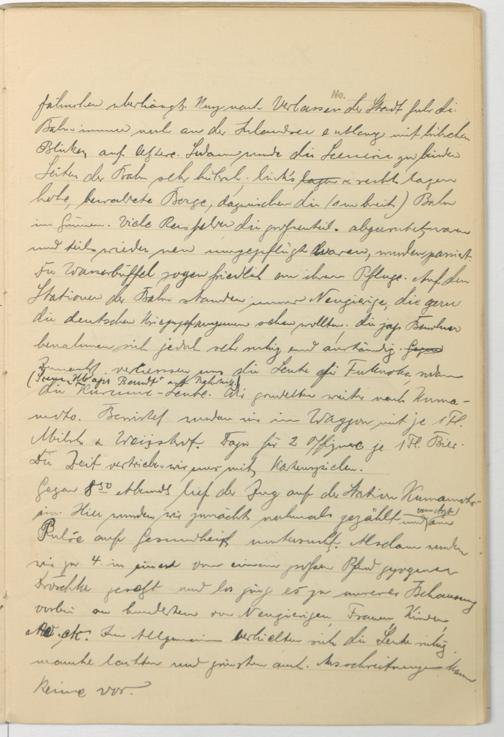 No.
fähnchen überhängt. Kurz nach Verlassen der Stadt fuhr die
Bahn immer noch an der Inlandsee entlang mit hübschen
Blicken auf letztere. Sodann wurde die Scenerie zu beiden
Seiten der Bahn sehr hübsch, links & rechts lagen
hohe, bewaldete Berge, dazwischen die (ein breit) Bahn
im Grünen. Viele Reisfelder die grösstenteil. abgeerntet waren
und teils wieder neu umgepflügt waren, wurden passiert.
Die Wasserbüffel zogen friedlich an ihren Pflügen. Auf den
Stationen der Bahn standen immer Neugierige, die gern
die deutschen Kriegsgefangenen sehen wollten. Die jap. Beamten
benahmen sich jedoch sehr ruhig und anständig.
verliessen uns die Leute für Fukuoka, sodann
die Kurume-Leute. Wir gondelten weiter nach Kuma-
moto. wurden uns im Waggon mit je 1 Fl.
Milch & Weissbrot. Dazu für 2 Offiziere je 1 Fl. Bier.
Die Zeit vertrieben wir uns mit Kartenspielen.
Gegen 8 30 abends lief der Zug auf der Station Kumamoto
ein. Hier wurden wir zunächst nochmals gezählt und am
Pulse auf Gesundheit untersucht. Alsdann wurden
wir zu 4 in von einem grossen Pferd gezogenen
Droschke gesetzt und los ging es zu unserer Behausung
vorbei an hunderten von Neugierigen, Frauen, Kinder,
etc. Im Allgemeinen verhielten sich die Leute ruhig.
manche lachten und grinsten auch. Ausschreitungen kamen
keine vor.